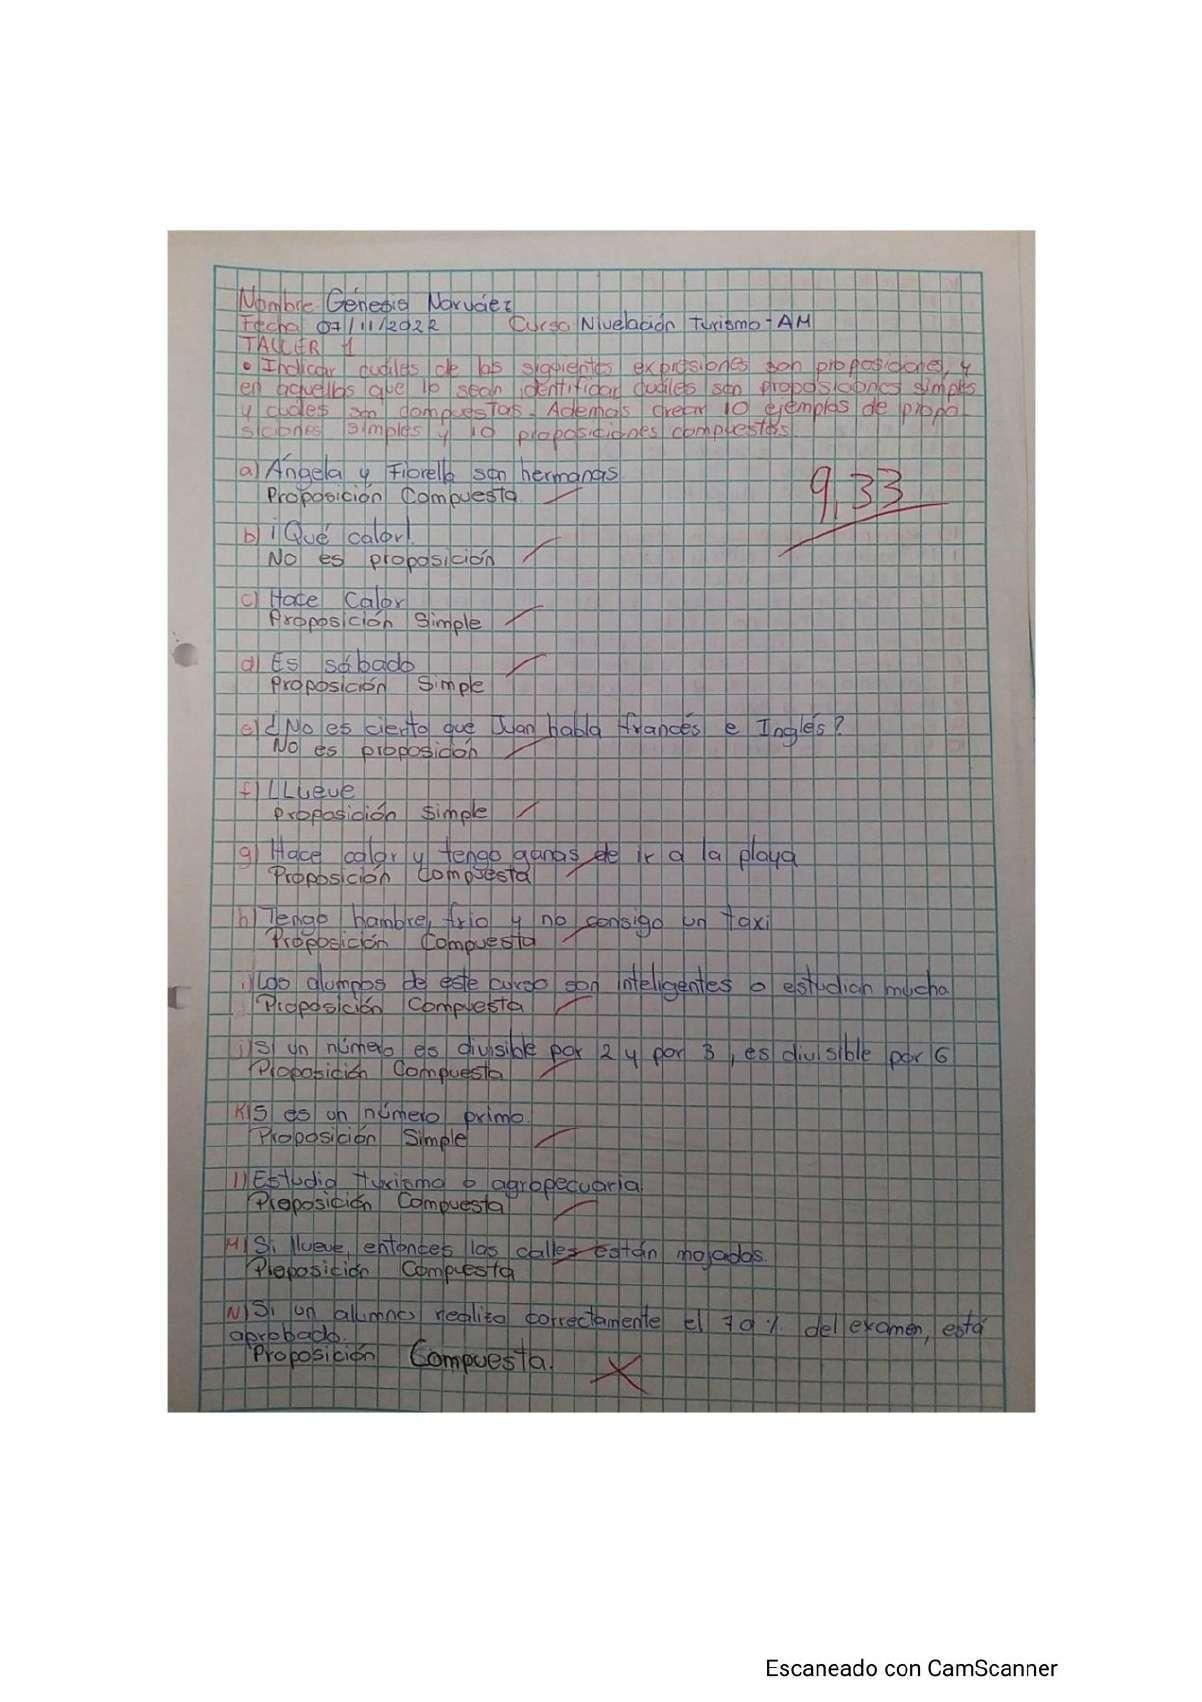 Nombre Génesis Narváez
Fecha 07/11/2022 Curso Nivelación Turismo-AM
TALLER 1
• Indicar cuáles de las siguientes expresiones son proposiciones, y
en aquellos que lo sean identificar cuáles son proposiciones simples
y cuáles son compuestas. Además crear 10 ejemplos de propo
siciones simples y 10 proposiciones compuestas
9,33
a) Ángela y Fiorella son hermanas
Proposición Compuesta
b) ¡Qué calor!
No es proposición
c) Hace Calor
Proposición Simple
d) Es sábado
Proposición Simple
e) ¿No es cierto que Juan habla francés e Inglés?
No es proposición
f) LLueve
Proposición simple
g) Hace calor y tengo ganas de ir a la playa
Proposición Compuesta
h) Tengo hambre, frio y no consigo un taxi
Proposición Compuesta
i) Los alumnos de este curso son inteligentes o estudian mucho
Proposición Compuesta
j) Si un número es divisible por 2 y por 3, es divisible por 6
Proposición Compuesta
K) 5 es un número primo
Proposición Simple
l) Estudio turismo o agropecuaria.
Proposición Compuesta
M) Si llueve, entonces las calles están mojadas.
Proposición Compuesta
N) Si un alumno realizo correctamente el 70% del examen, está
aprobado.
Proposición Compuesta.
Escaneado con CamScanner